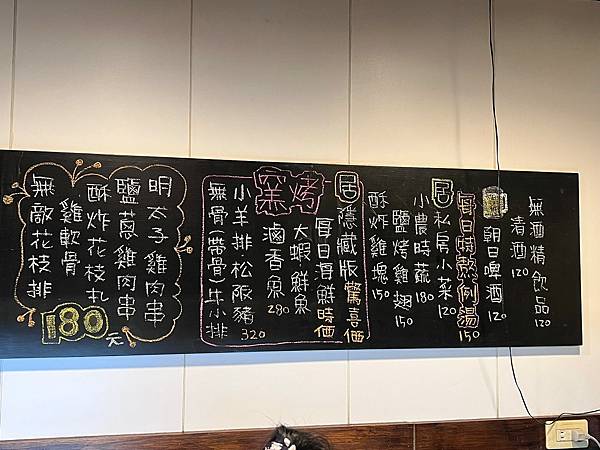 無酒精飲品 120
清酒 120
朝日啤酒 120
每日時熬例湯 150
居私房小菜 120
小農時蔬 180
鹽烤雞翅 150
酥炸雞塊 150
居隱藏版驚喜價
每日海鮮時価
窯烤
大蝦鮮魚
滷香魚 280
小羊排松阪豬 320
無骨(帶骨)牛小排
明太子雞肉串
鹽蔥雞肉串
酥炸花枝丸
雞軟骨
無敵花枝排
180元